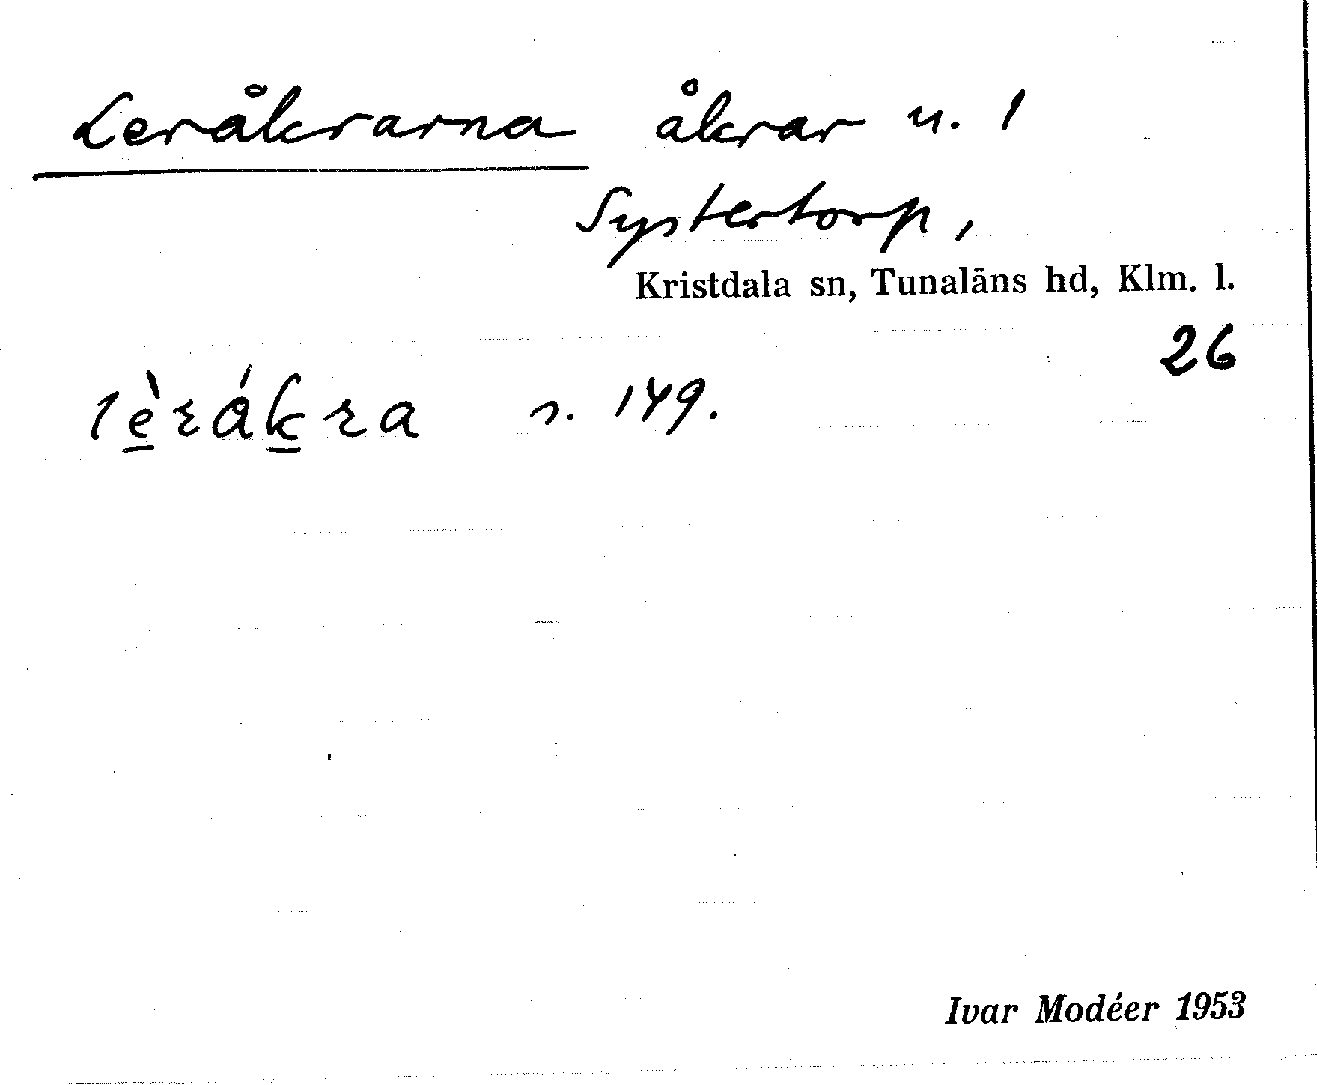 Leråkrarna åkrar n. 1
Systertorp,
Kristdala sn, Tunaläns hd, Klm. l.
26
lèråkra s. 149.
Ivar Modéer 1953